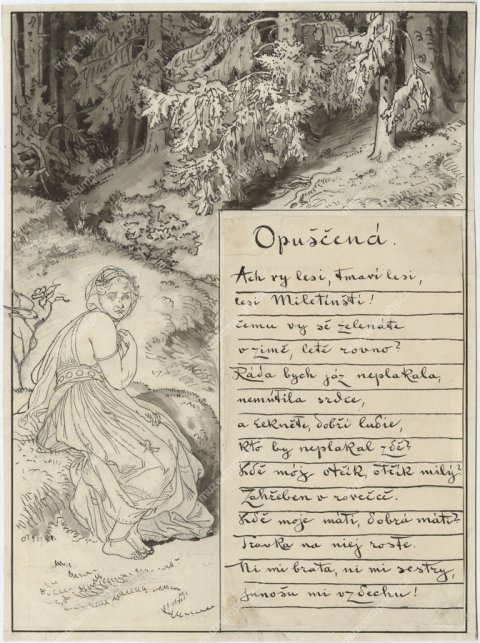 Opuščená.
Ach vy lesi, tmaví lesi,
lesi Miletínští!
čemu vy sě zelenáte
v zimě, letě rovno?
Ráda bych jáz neplakala,
nemútila srdce,
a řekněte, dobří ludie,
kto by neplakal zdě?
Kdě mój otčík, otčík milý?
Zahřeben v rovečcě.
Kdě moje máti, dobrá máti?
Travka na niej roste.
Ni mi brata, ni mi sestry,
junošu mi vzdechu!